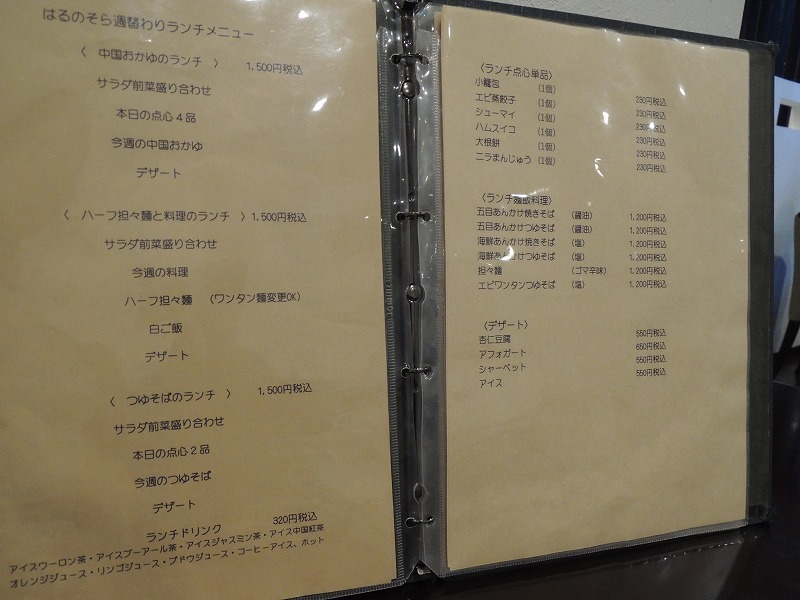 はるのそら週替わりランチメニュー
〈 中国おかゆのランチ 〉 1,500円税込
サラダ前菜盛り合わせ
本日の点心４品
今週の中国おかゆ
デザート
〈 ハーフ担々麺と料理のランチ 〉1,500円税込
サラダ前菜盛り合わせ
今週の料理
ハーフ担々麺 (ワンタン麺変更OK)
白ご飯
デザート
〈 つゆそばのランチ 〉 1,500円税込
サラダ前菜盛り合わせ
本日の点心２品
今週のつゆそば
デザート
ランチドリンク 320円税込
アイスウーロン茶・アイスプーアール茶・アイスジャスミン茶・アイス中国紅茶
オレンジジュース・リンゴジュース・ブドウジュース・コーヒーアイス、ホット
〈ランチ点心単品〉
小籠包 (1個) 230円税込
エビ蒸餃子 (1個) 230円税込
シューマイ (1個) 230円税込
ハムスイコ (1個) 230円税込
大根餅 (1個) 230円税込
ニラまんじゅう (1個) 230円税込
〈ランチ麺飯料理〉
五目あんかけ焼きそば (醤油) 1,200円税込
五目あんかけつゆそば (醤油) 1,200円税込
海鮮あんかけ焼きそば (塩) 1,200円税込
海鮮あんかけつゆそば (塩) 1,200円税込
担々麺 (ゴマ辛味) 1,200円税込
エビワンタンつゆそば (塩) 1,200円税込
〈デザート〉
杏仁豆腐 550円税込
アフォガート 650円税込
シャーベット 550円税込
アイス 550円税込